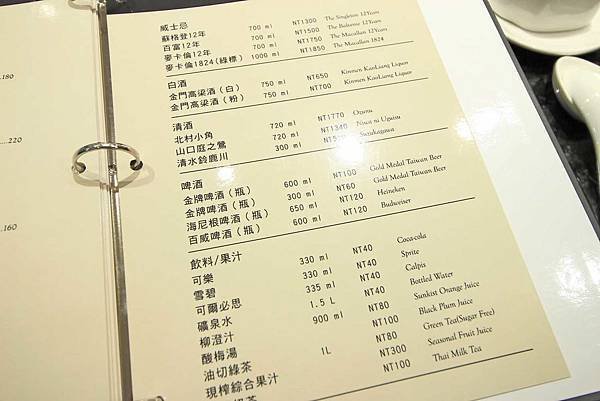 威士忌
蘇格登12年 700 ml NT1300 The Singleton 12Years
百富12年 700 ml NT1500 The Balvenie 12Years
麥卡倫12年 700 ml NT1750 The Macallan 12Years
麥卡倫1824(綠標) 1000 ml NT1850 The Macallan 1824
白酒
金門高梁酒(白) 750 ml NT650 Kinmen KaoLiang Liquor
金門高梁酒(粉) 750 ml NT700 Kinmen KaoLiang Liquor
清酒
北村小角 720 ml NT1770
山口庭之鶯 720 ml NT1340 Niwa ni Uguisu
清水鈴鹿川 300 ml Suzukagawa
啤酒
金牌啤酒(瓶) 600 ml NT100 Gold Medal Taiwan Beer
金牌啤酒(瓶) 300 ml NT60 Gold Medal Taiwan Beer
海尼根啤酒(瓶) 650 ml NT120 Heineken
百威啤酒(瓶) 600 ml NT120 Budweiser
飲料/果汁
可樂 330 ml NT40 Coca-cola
雪碧 330 ml NT40 Sprite
可爾必思 335 ml NT40 Calpis
礦泉水 1.5 L NT40 Bottled Water
柳澄汁 900 ml NT80 Sunkist Orange Juice
酸梅湯 NT100 Black Plum Juice
油切綠茶 1L NT80 Green Tea(Sugar Free)
現榨綜合果汁 NT300 Seasonal Fruit Juice
NT100 Thai Milk Tea
.180
220
.160